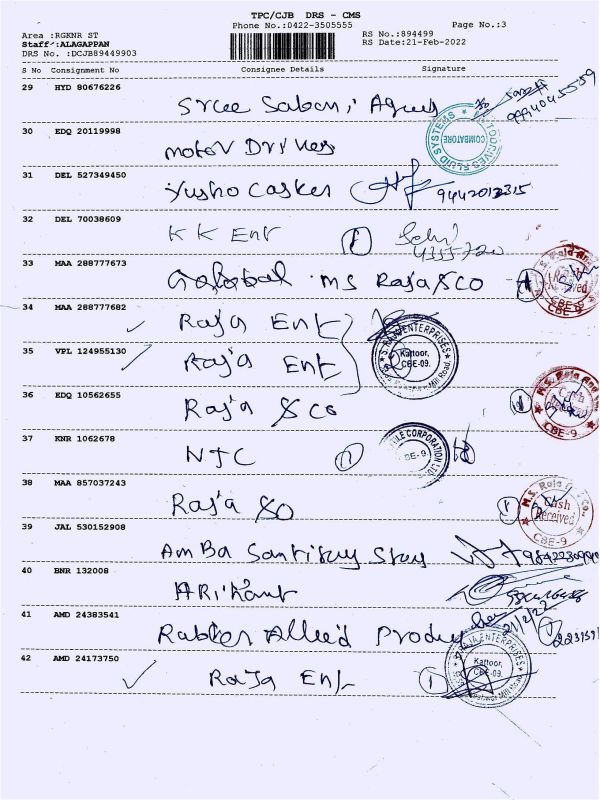 TPC/CJB DRS - CMS
Phone No.:0422-3505555
Page No.:3
Area :RGKNR ST
Staff :ALAGAPPAN
DRS No. :DCJB89449903
RS No.:894499
RS Date:21-Feb-2022
S No Consignment No Consignee Details Signature
29 HYD 80676226
Sree Saban
30 EDQ 20119998
Motor Drives
COIMBATORE
31 DEL 527349450
Yusho Casker 9442012315
32 DEL 70038609
K K Ent
33 MAA 288777673
Golobal MS Raja & CO
CBE-9
34 MAA 288777682
Raja Ent
35 VPL 124955130
Raja Ent
S. RAJA ENTERPRISES
Kattoor,
CBE-09.
Mill Road,
36 EDQ 10562655
Raja & Co
CBE-9
37 KNR 1062678
NTC
CORPORATION
38 MAA 857037243
Raja & Co
M.S. Raja And Co.
Cash
Received
CBE-9
39 JAL 530152908
Amba
40 BNR 132008
Arihant
41 AMD 24383541
Allied
21/2/22
42 AMD 24173750
Raja Ent
RAJA ENTERPRISES
Kattoor,
CBE-09.
Mill Road,